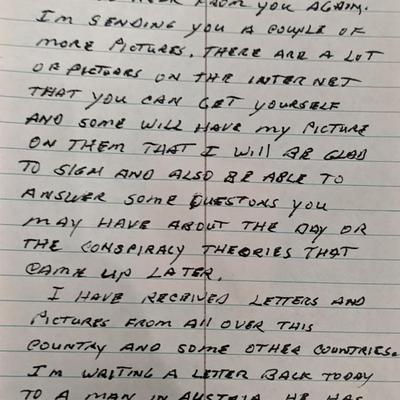 FROM YOU AGAIN.
I'M SENDING YOU A COUPLE OF
MORE PICTURES. THERE ARE A LOT
OF PICTUERS ON THE INTERNET
THAT YOU CAN GET YOURSELF
AND SOME WILL HAVE MY PICTURE
ON THEM THAT I WILL BE GLAD
TO SIGN AND ALSO BE ABLE TO
ANSWER SOME QUESTONS YOU
MAY HAVE ABOUT THE DAY OR
THE CONSPIRACY THEORIES THAT
CAME UP LATER.
I HAVE RECEIVED LETTERS AND
PICTURES FROM All OVER THIS
COUNTRY AND SOME OTHER COUNTRIES.
I'M WRITING A LETTER BACK TODAY
TO A MAN IN AUSTRIA HE HAS